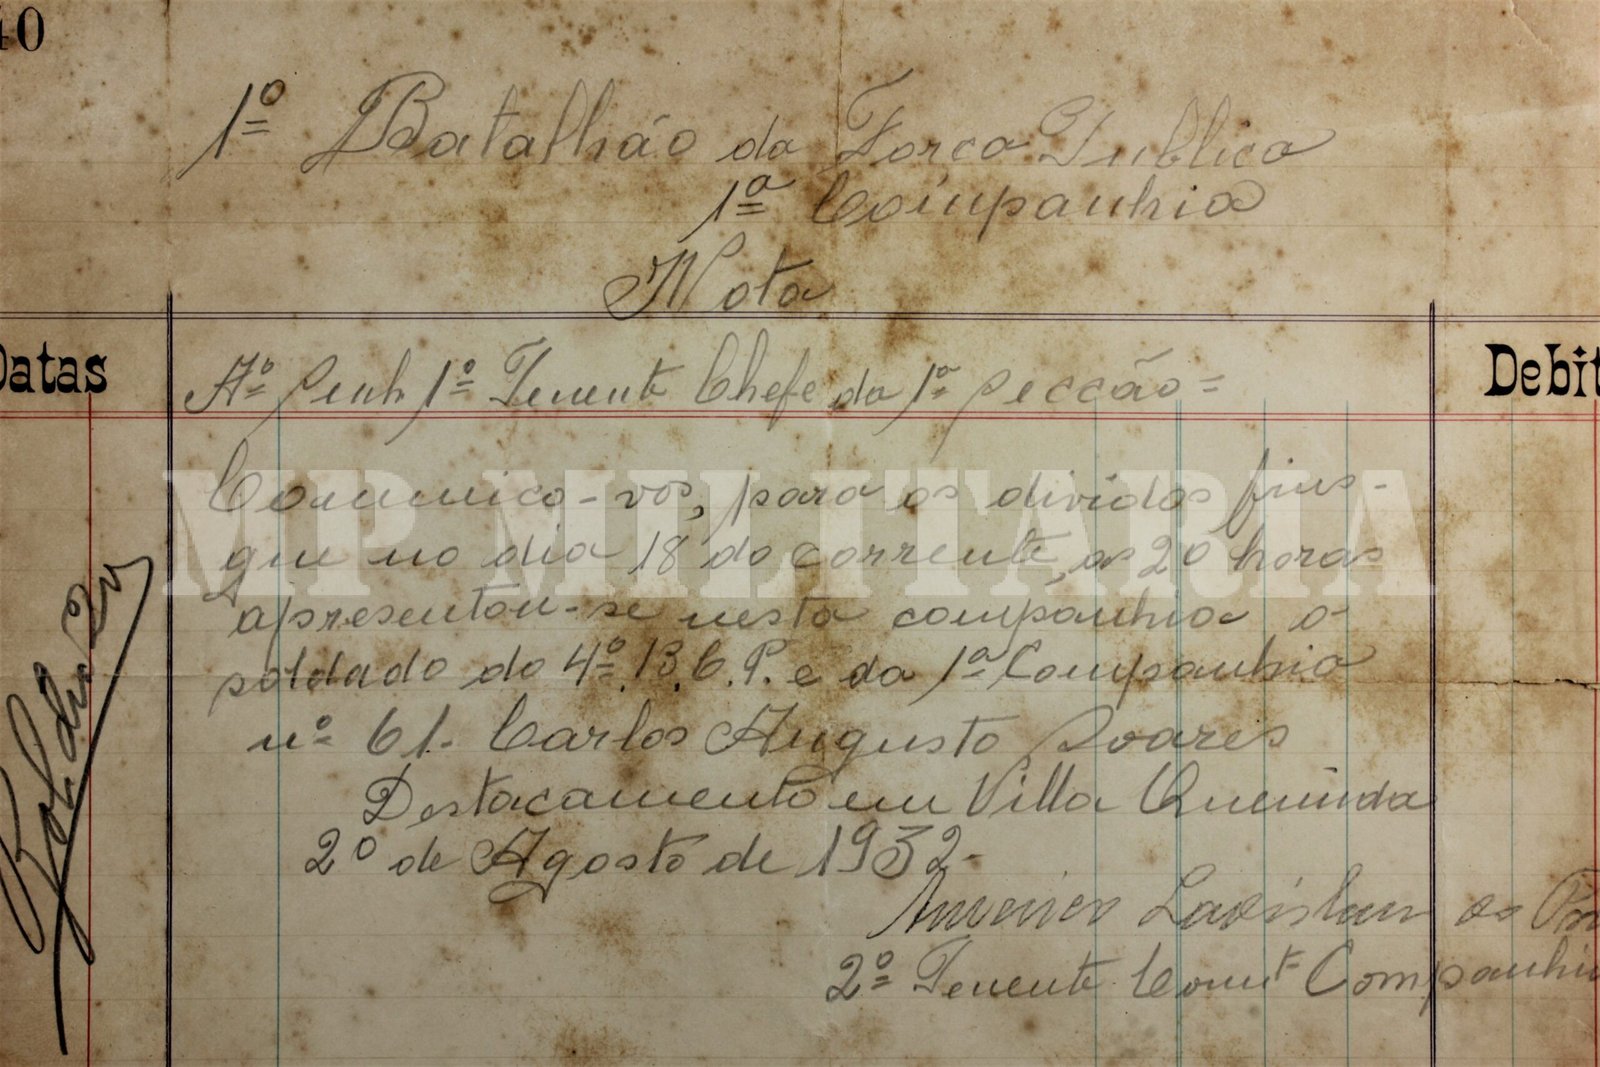 40
1º Batalhão da Forca Publica
1ª Companhia
Nota
Datas
Aº Senh 1º Tenente Chefe da 1ª Secção =
Debit
MP MILITARIA
Communico-vos, para os dividos fins-
que no dia 18 do corrente, as 20 horas
apresentou-se nesta companhia o
soldado do 4º. B. C. P. e da 1ª Companhia
nº 61. Carlos Augusto Soares
Destacamento em Villa Queimida
20 de Agosto de 1932-
Americo Ladislau
2º Tenente Comt Companhia